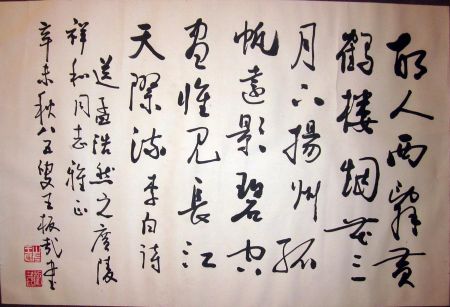 故人西辭黄
鶴樓烟花三
月下揚州孤
帆遠影碧空
盡惟見長江
天際流 李白詩
送孟浩然之廣陵
祥和同志雅正
辛未秋八五叟王板哉書